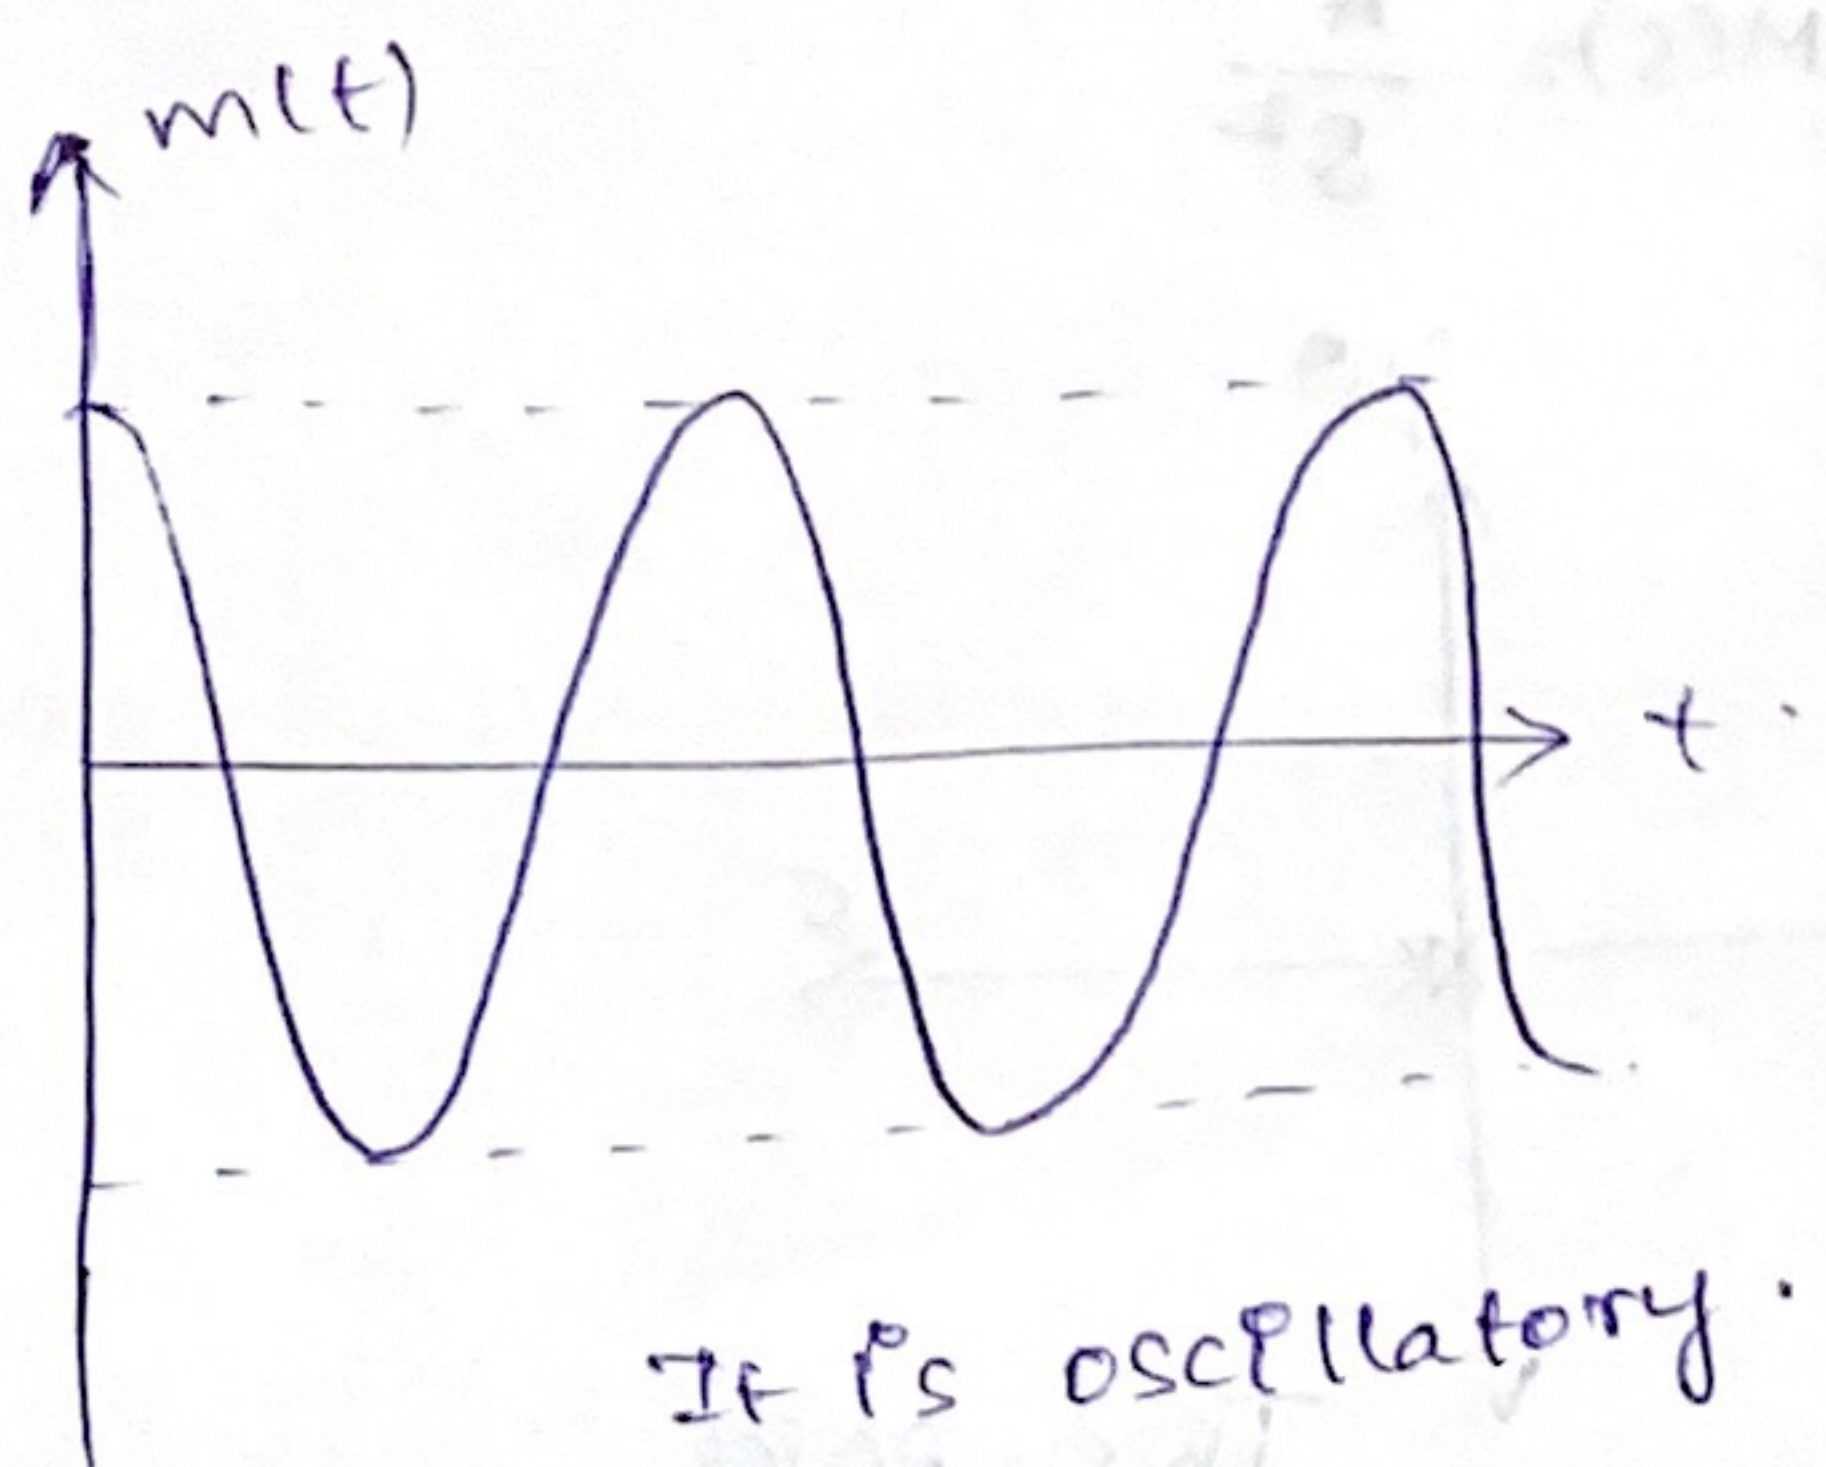 m(t)
t.
It is oscillatory.